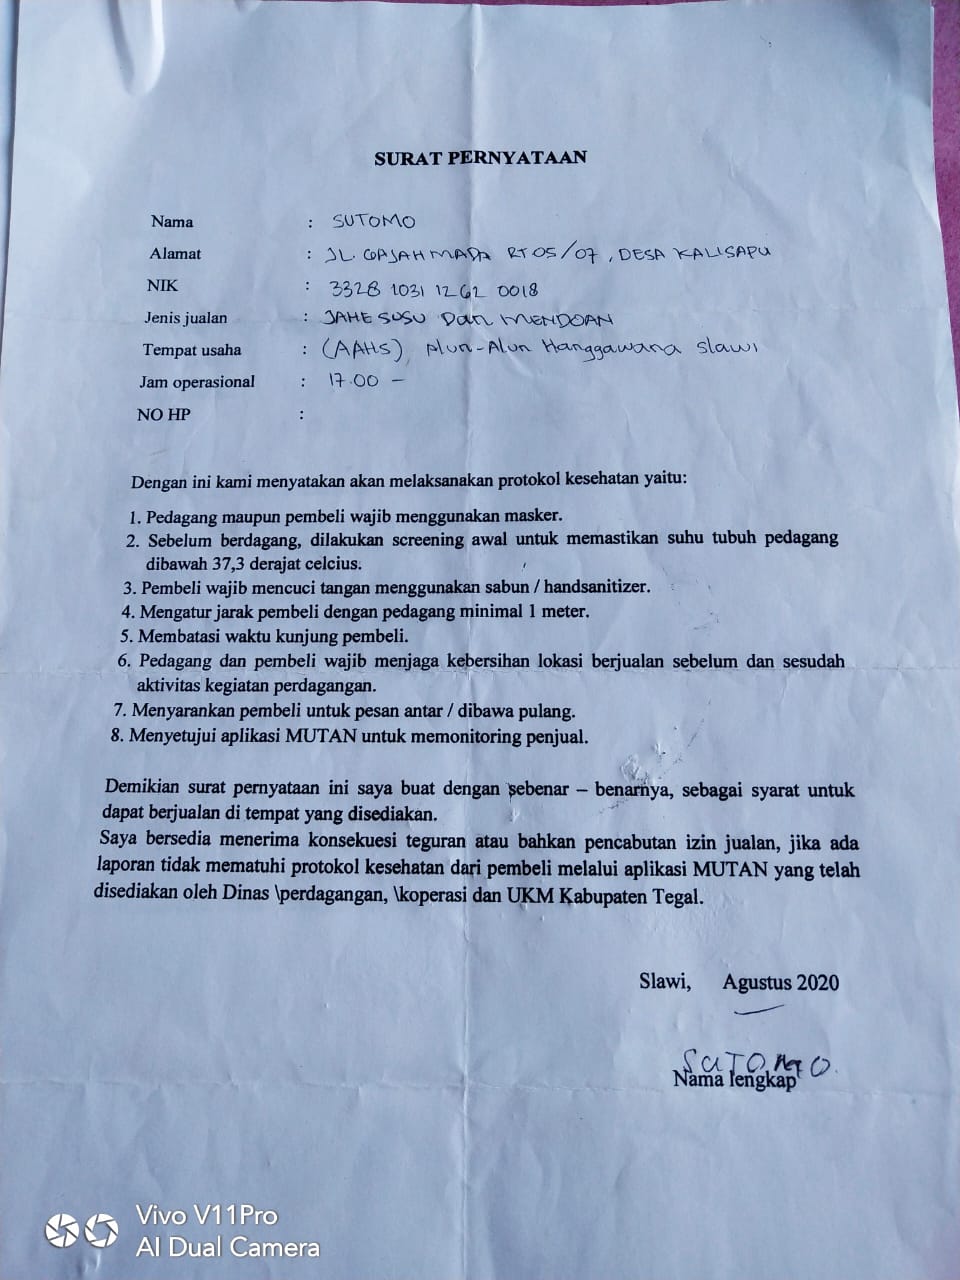 SURAT PERNYATAAN
Nama : SUTOMO
Alamat : JL. GAJAH MADA RT 05/07, DESA KALISAPU
NIK : 3328 1031 1262 0018
Jenis jualan : JAHE SUSU Dan MENDOAN
Tempat usaha : (AAHS) Alun-Alun Hanggawana Slawi
Jam operasional : 17.00 –
NO HP :
Dengan ini kami menyatakan akan melaksanakan protokol kesehatan yaitu:
1. Pedagang maupun pembeli wajib menggunakan masker.
2. Sebelum berdagang, dilakukan screening awal untuk memastikan suhu tubuh pedagang
dibawah 37,3 derajat celcius.
3. Pembeli wajib mencuci tangan menggunakan sabun / handsanitizer.
4. Mengatur jarak pembeli dengan pedagang minimal 1 meter.
5. Membatasi waktu kunjung pembeli.
6. Pedagang dan pembeli wajib menjaga kebersihan lokasi berjualan sebelum dan sesudah
aktivitas kegiatan perdagangan.
7. Menyarankan pembeli untuk pesan antar / dibawa pulang.
8. Menyetujui aplikasi MUTAN untuk memonitoring penjual.
Demikian surat pernyataan ini saya buat dengan sebenar – benarnya, sebagai syarat untuk
dapat berjualan di tempat yang disediakan.
Saya bersedia menerima konsekuesi teguran atau bahkan pencabutan izin jualan, jika ada
laporan tidak mematuhi protokol kesehatan dari pembeli melalui aplikasi MUTAN yang telah
disediakan oleh Dinas \perdagangan, \koperasi dan UKM Kabupaten Tegal.
Slawi, Agustus 2020
SUTOMO.
Nama lengkap
Vivo V11Pro
AI Dual Camera